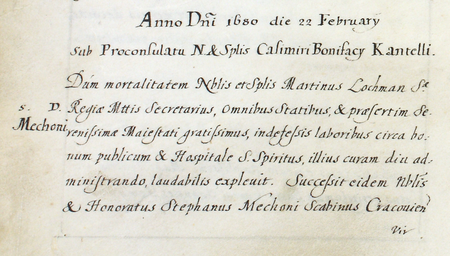 Anno Dni 1680 die 22 February
Sub Proconsulatu N & Splis Casimiri Bonifacy Kantelli.
Dum mortalitatem Nblis et Splis Martinus Lochman Sæ
S. D. Regiæ Mttis Secretarius, omnibus Statibus, & præsertim Se-
Mechoni renissimæ Maiestati gratissimus, indefessis laboribus circa bo-
num publicum & Hospitale S. Spiritus, illius curam diu ad-
ministrando, laudabilis expleuit. Successit eidem Nblis
& Honoratus Stephanus Mechoni Scabinus Cracouien
Vir